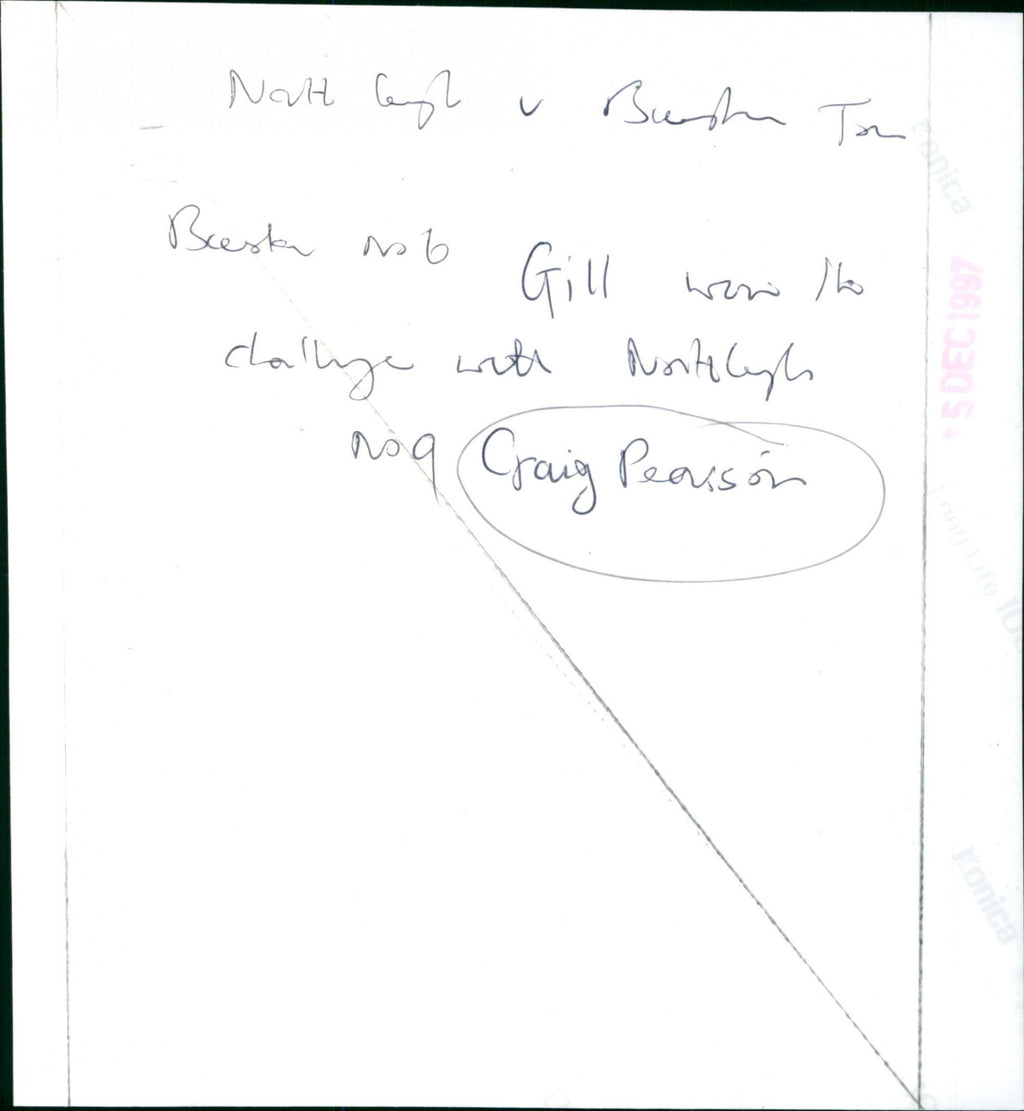 North Leigh v Bicester Town
Bicester No 6 Gill wins the
challenge with North Leigh
No 9 Craig Pearson
Konica
15 DEC 1997
Long Life 100
Konica